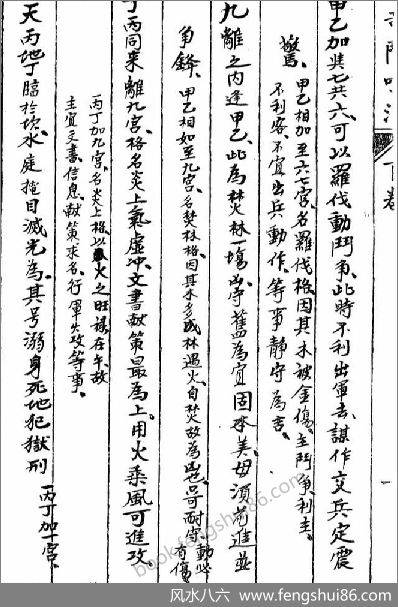 甲乙加共七共六、可以羅伐動鬥爭、此時不利出軍去、謀作交兵定震
驚、甲乙相加至六七宮、名羅伐格、因其木被金傷、主鬥爭利主、
不利客、不宜出兵動作、等事靜守為吉、
九離之內逢甲乙、此為焚林一場凶、守舊為宜固本美、毋須前進並
爭鋒、甲乙相加至九宮、名焚林格、因其木多成林遇火自焚故為凶也、只可耐守動必有傷
丁丙同來離九宮、格名炎上氣虛沖、文書獻策最為上、用火乘風可進攻、
丙丁加九宮、名炎上格、以火之旺祿在午故
主宜文書、信息、獻策求名、行軍火攻等事、
天丙地丁臨於坎、水庭掩目滅光為、其号溺身死地犯獄刑
丙丁加一宮、
下卷
一
book.fengshui86.com
风水八六 www.fengshui86.com